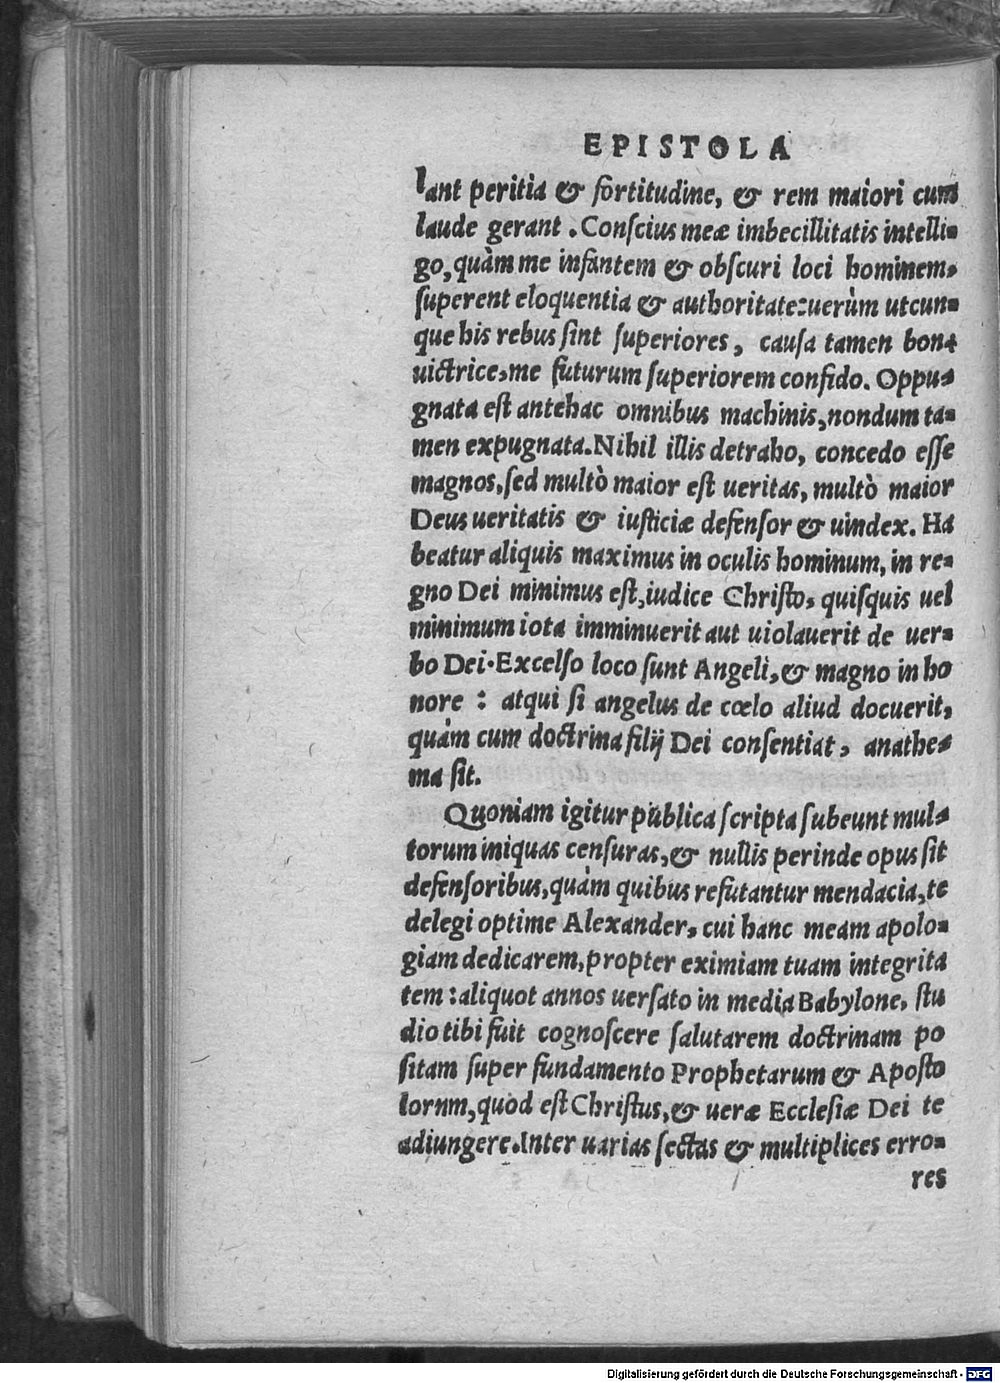 EPISTOLA
lant peritia & fortitudine, & rem maiori cum
laude gerant. Conſcius meæ imbecillitatis intelli-
go, quàm me infantem & obſcuri loci hominem,
ſuperent eloquentia & authoritate: uerùm utcun-
que his rebus ſint ſuperiores, cauſa tamen bona
uictrice, me futurum ſuperiorem confido. Oppu-
gnata eſt antehac omnibus machinis, nondum ta-
men expugnata. Nihil illis detraho, concedo eſſe
magnos, ſed multò maior eſt ueritas, multò maior
Deus ueritatis & iuſticiæ defenſor & uindex. Ha
beatur aliquis maximus in oculis hominum, in re-
gno Dei minimus eſt, iudice Chriſto, quiſquis uel
minimum iota imminuerit aut uiolauerit de uer-
bo Dei. Excelſo loco ſunt Angeli, & magno in ho
nore: atqui ſi angelus de cœlo aliud docuerit,
quàm cum doctrina filij Dei conſentiat, anathe-
ma ſit.
Quoniam igitur publica ſcripta ſubeunt mul-
torum iniquas cenſuras, & nullis perinde opus ſit
defenſoribus, quàm quibus refutantur mendacia, te
delegi optime Alexander, cui hanc meam apolo-
giam dedicarem, propter eximiam tuam integrita
tem: aliquot annos uerſato in media Babylone, ſtu
dio tibi fuit cognoſcere ſalutarem doctrinam po
ſitam ſuper fundamento Prophetarum & Apoſto
lornm, quod eſt Chriſtus, & ueræ Eccleſiæ Dei te
adiungere. Inter uarias ſectas & multiplices erro-
res
Digitalisierung gefördert durch die Deutsche Forschungsgemeinschaft - DFG